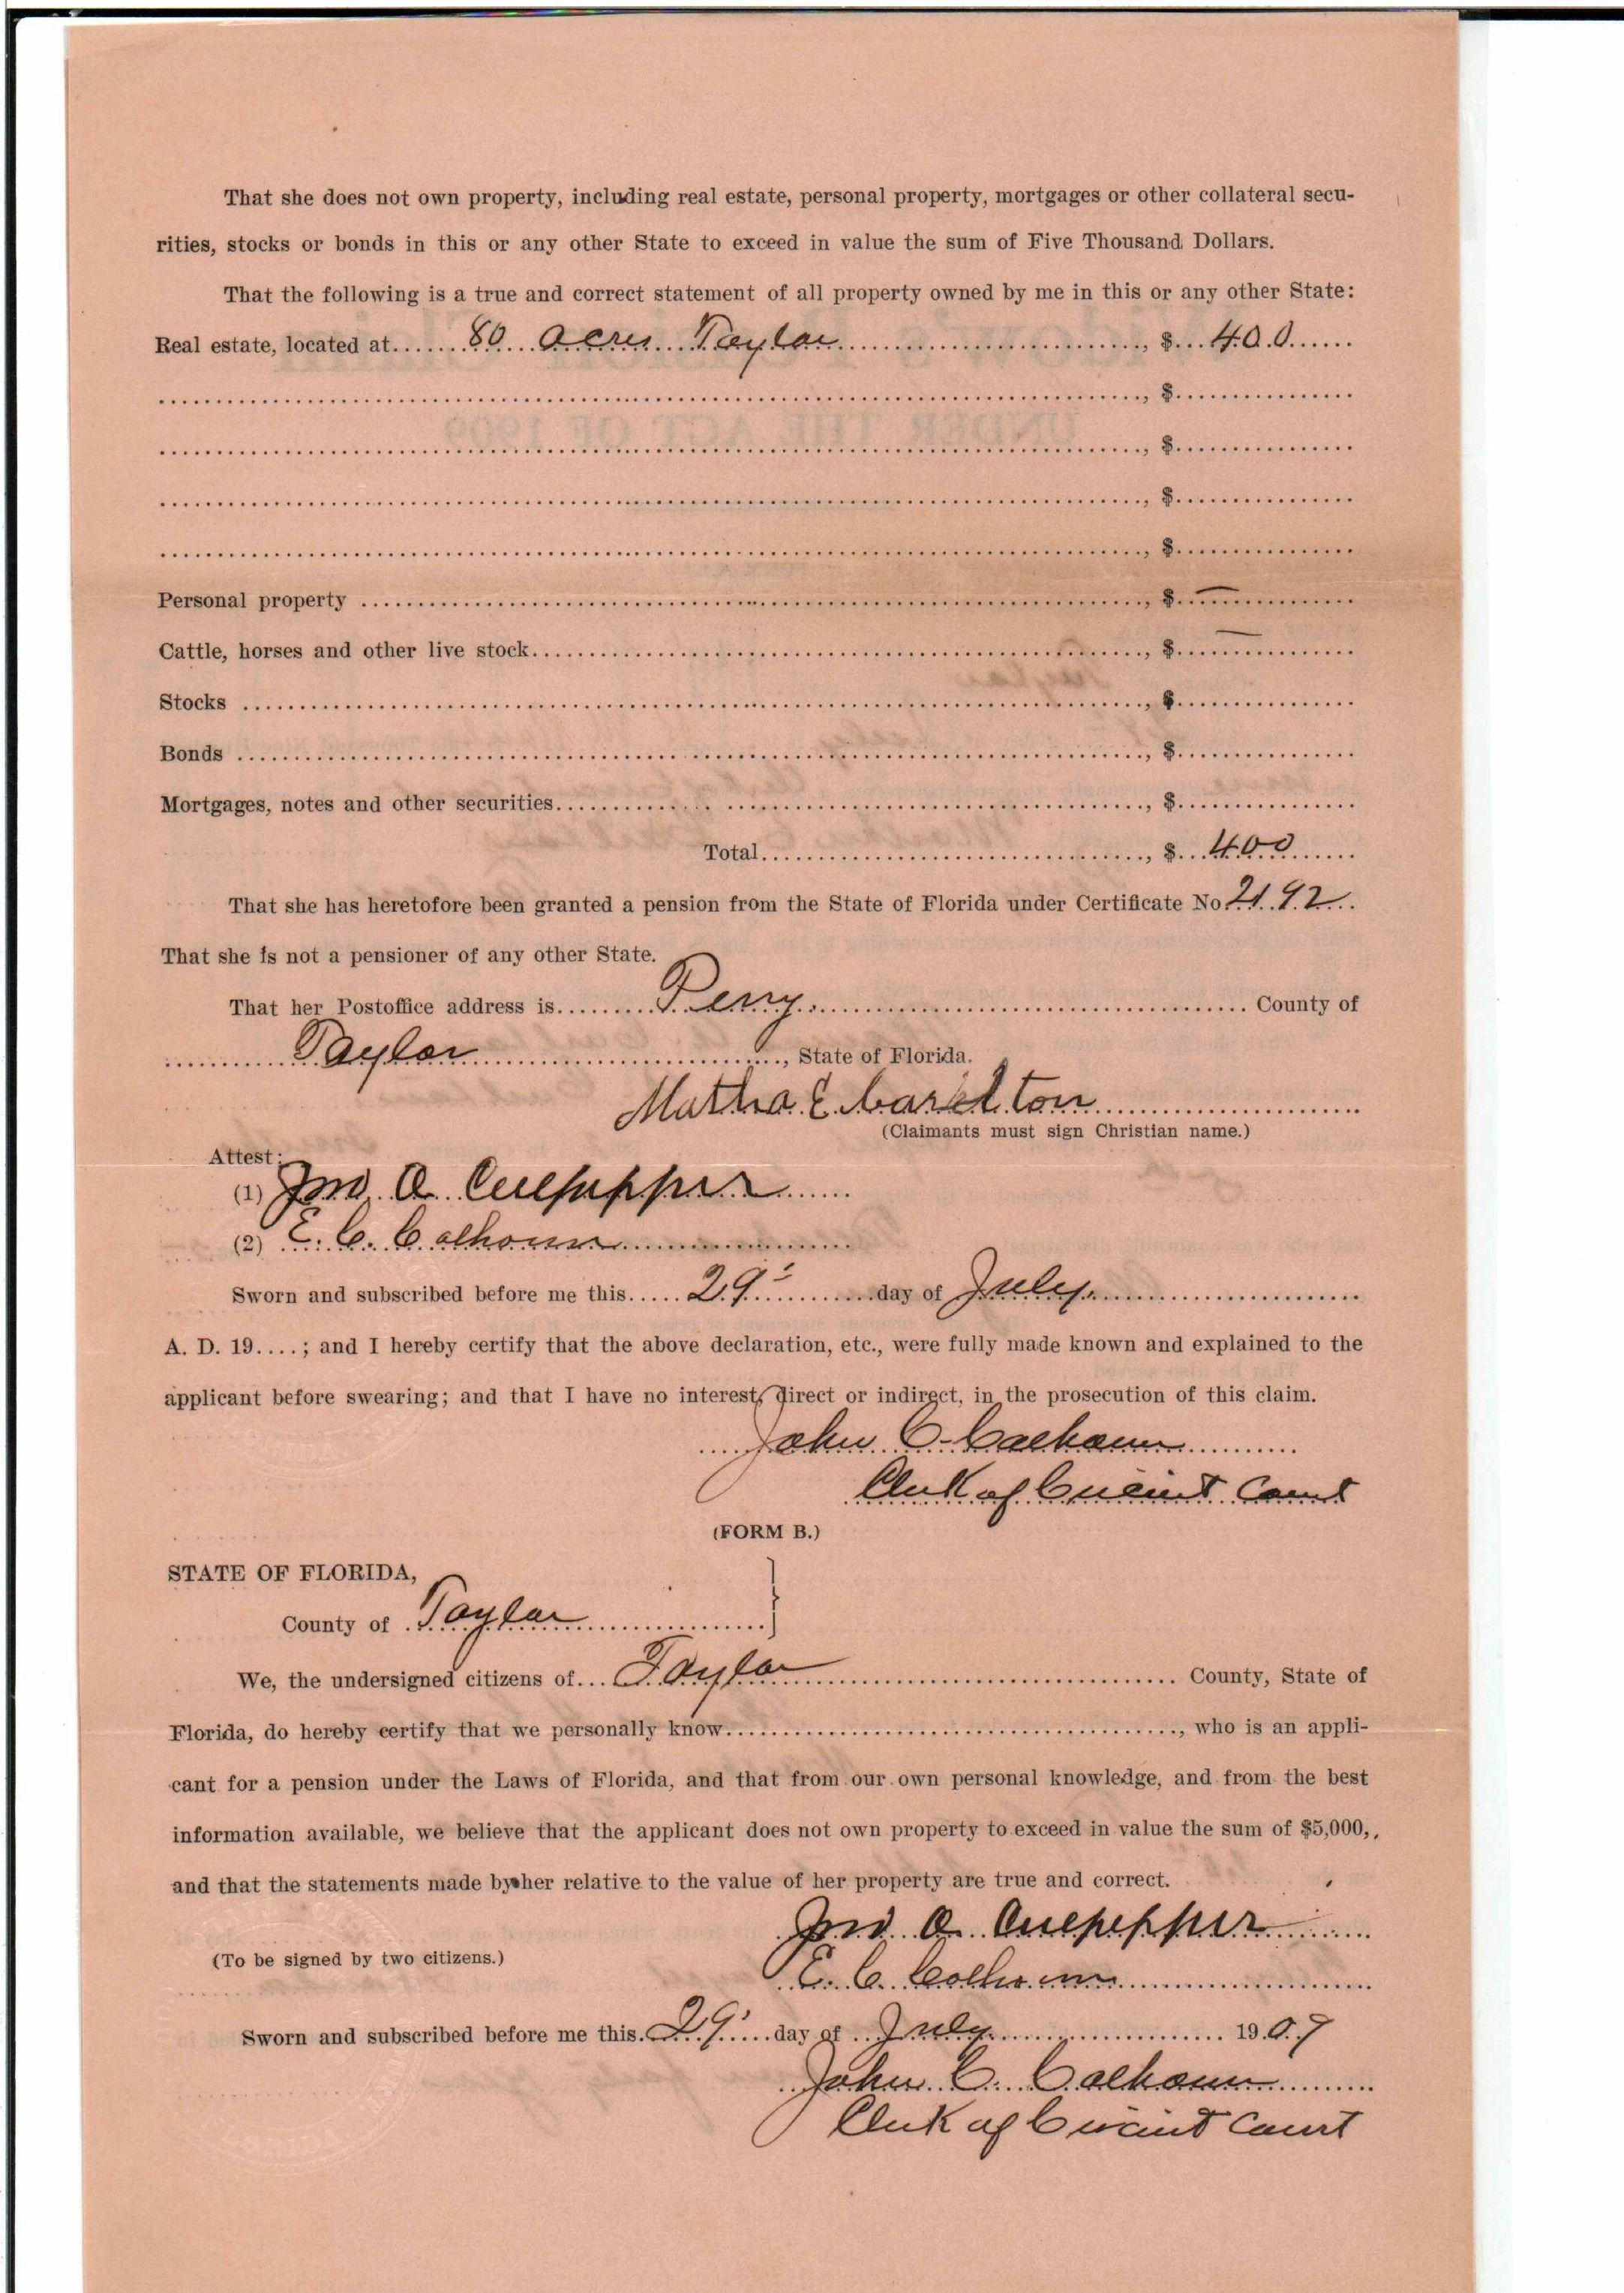 That she does not own property, including real estate, personal property, mortgages or other collateral secu-
rities, stocks or bonds in this or any other State to exceed in value the sum of Five Thousand Dollars.
That the following is a true and correct statement of all property owned by me in this or any other State:
Real estate, located at 80 acres Taylor, $ 400
, $
, $
, $
, $
Personal property, $ —
Cattle, horses and other live stock, $ —
Stocks, $
Bonds, $
Mortgages, notes and other securities, $
Total, $ 400
That she has heretofore been granted a pension from the State of Florida under Certificate No 2192.
That she is not a pensioner of any other State.
That her Postoffice address is Perry County of
Taylor, State of Florida.
Martha E Carlton
(Claimants must sign Christian name.)
Attest:
(1) Jno. O Culpepper
(2) E. C. Calhoun
Sworn and subscribed before me this 29 day of July
A. D. 19....; and I hereby certify that the above declaration, etc., were fully made known and explained to the
applicant before swearing; and that I have no interest, direct or indirect, in the prosecution of this claim.
John C. Calhoun
Clerk of Circuit Court
(FORM B.)
STATE OF FLORIDA,
County of Taylor
We, the undersigned citizens of Taylor County, State of
Florida, do hereby certify that we personally know, who is an appli-
cant for a pension under the Laws of Florida, and that from our own personal knowledge, and from the best
information available, we believe that the applicant does not own property to exceed in value the sum of $5,000,
and that the statements made by her relative to the value of her property are true and correct.
Jno O Culpepper
(To be signed by two citizens.)
E. C. Calhoun
Sworn and subscribed before me this 29 day of July 1909
John C. Calhoun
Clerk of Circuit Court